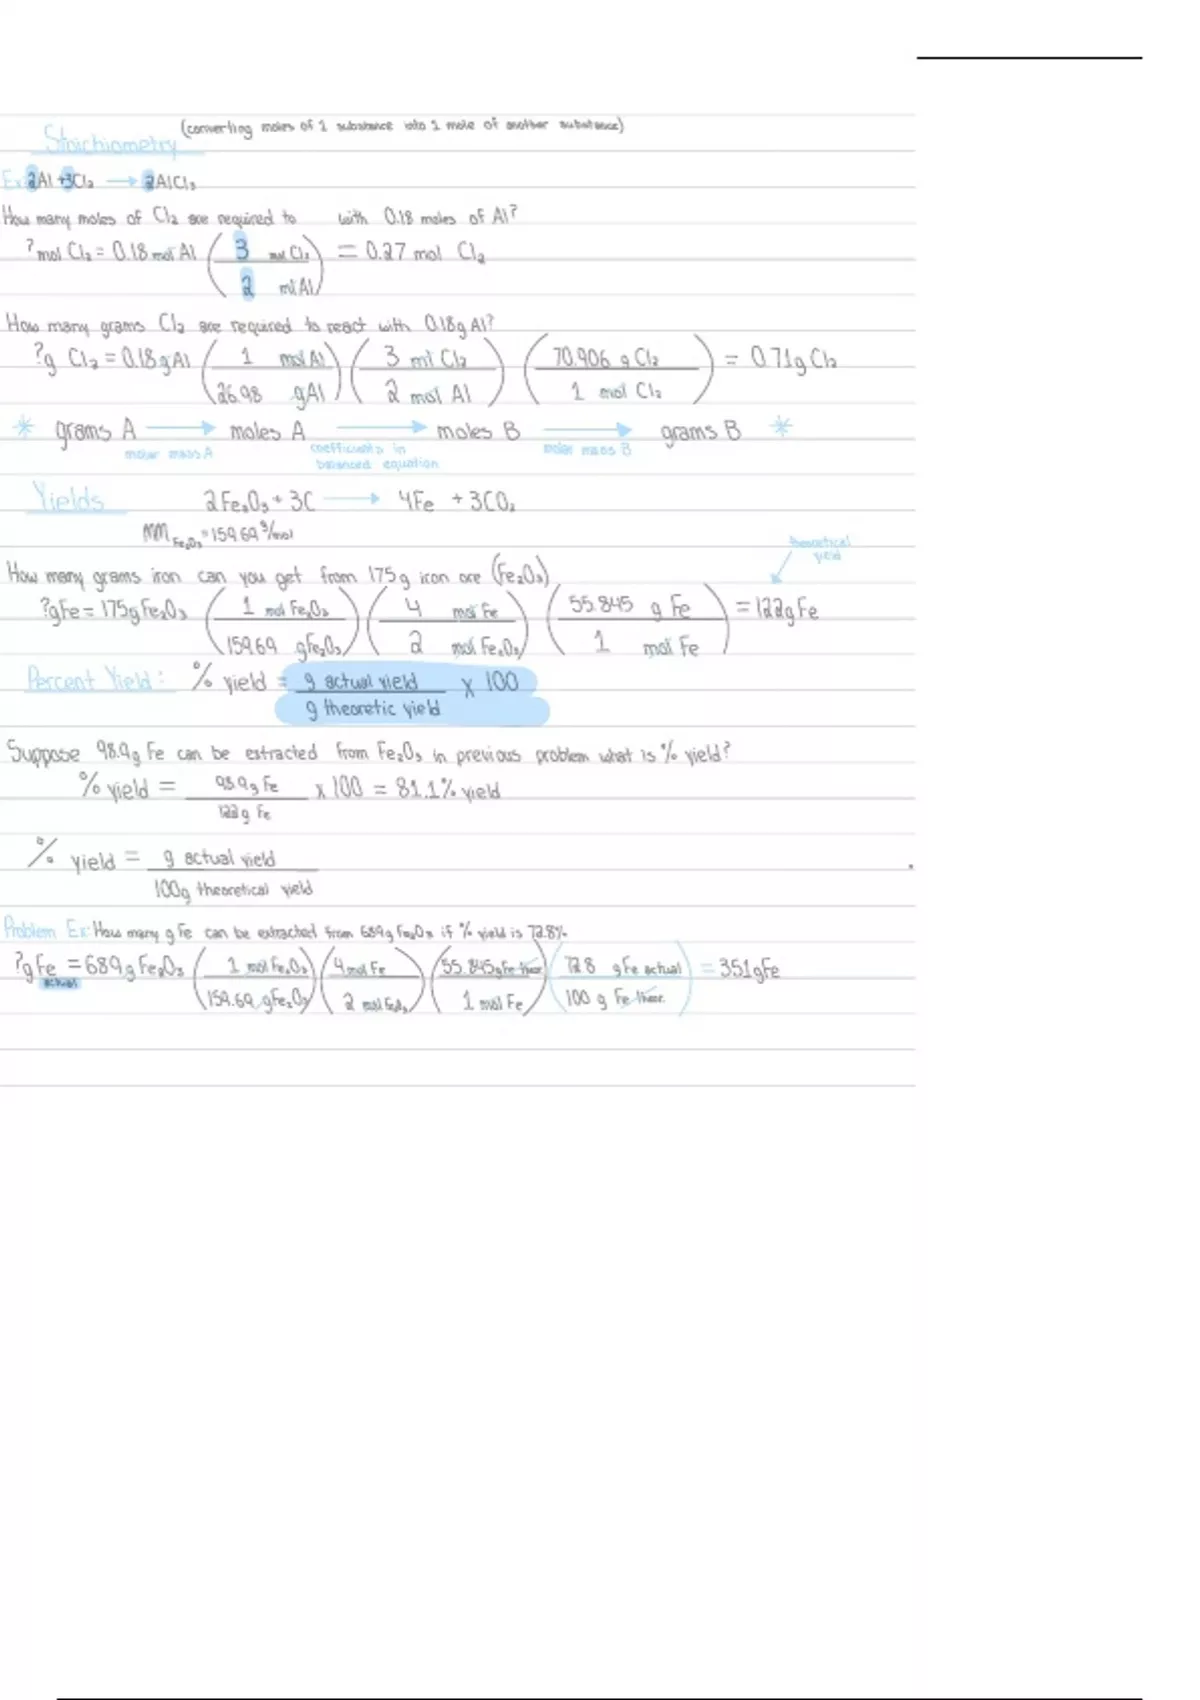 Stoichiometry (converting moles of 1 substance into 1 mole of another substance)
Ex: 2Al + 3Cl₂ → 2AlCl₃
How many moles of Cl₂ are required to with 0.18 moles of Al?
? mol Cl₂ = 0.18 mol Al ( 3 mol Cl₂ / 2 ml Al ) = 0.27 mol Cl₂
How many grams Cl₂ are required to react with 0.18g Al?
?g Cl₂ = 0.18 g Al ( 1 mol Al / 26.98 g Al ) ( 3 ml Cl₂ / 2 mol Al ) ( 70.906 g Cl₂ / 1 mol Cl₂ ) = 0.71g Cl₂
* grams A → moles A → moles B → grams B *
molar mass A coefficients in balanced equation molar mass B
Yields 2Fe₂O₃ + 3C → 4Fe + 3CO₂
MM Fe₂O₃ = 159.69 g/mol
theoretical yield
How many grams iron can you get from 175g iron ore (Fe₂O₃)
?gFe = 175g Fe₂O₃ ( 1 mol Fe₂O₃ / 159.69 gFe₂O₃ ) ( 4 mol Fe / 2 mol Fe₂O₃ ) ( 55.845 g Fe / 1 mol Fe ) = 122g Fe
Percent Yield: % yield = g actual yield / g theoretic yield x 100
Suppose 98.9g Fe can be extracted from Fe₂O₃ in previous problem what is % yield?
% yield = 98.9g Fe / 122g Fe x 100 = 81.1% yield
% yield = g actual yield / 100g theoretical yield
Problem Ex: How many g Fe can be extracted from 689g Fe₂O₃ if % yield is 72.8%
?g Fe actual = 689g Fe₂O₃ ( 1 mol Fe₂O₃ / 159.69 gFe₂O₃ ) ( 4 mol Fe / 2 mol Fe₂O₃ ) ( 55.845g Fe theor. / 1 mol Fe ) ( 72.8 gFe actual / 100 g Fe theor. ) = 351gFe